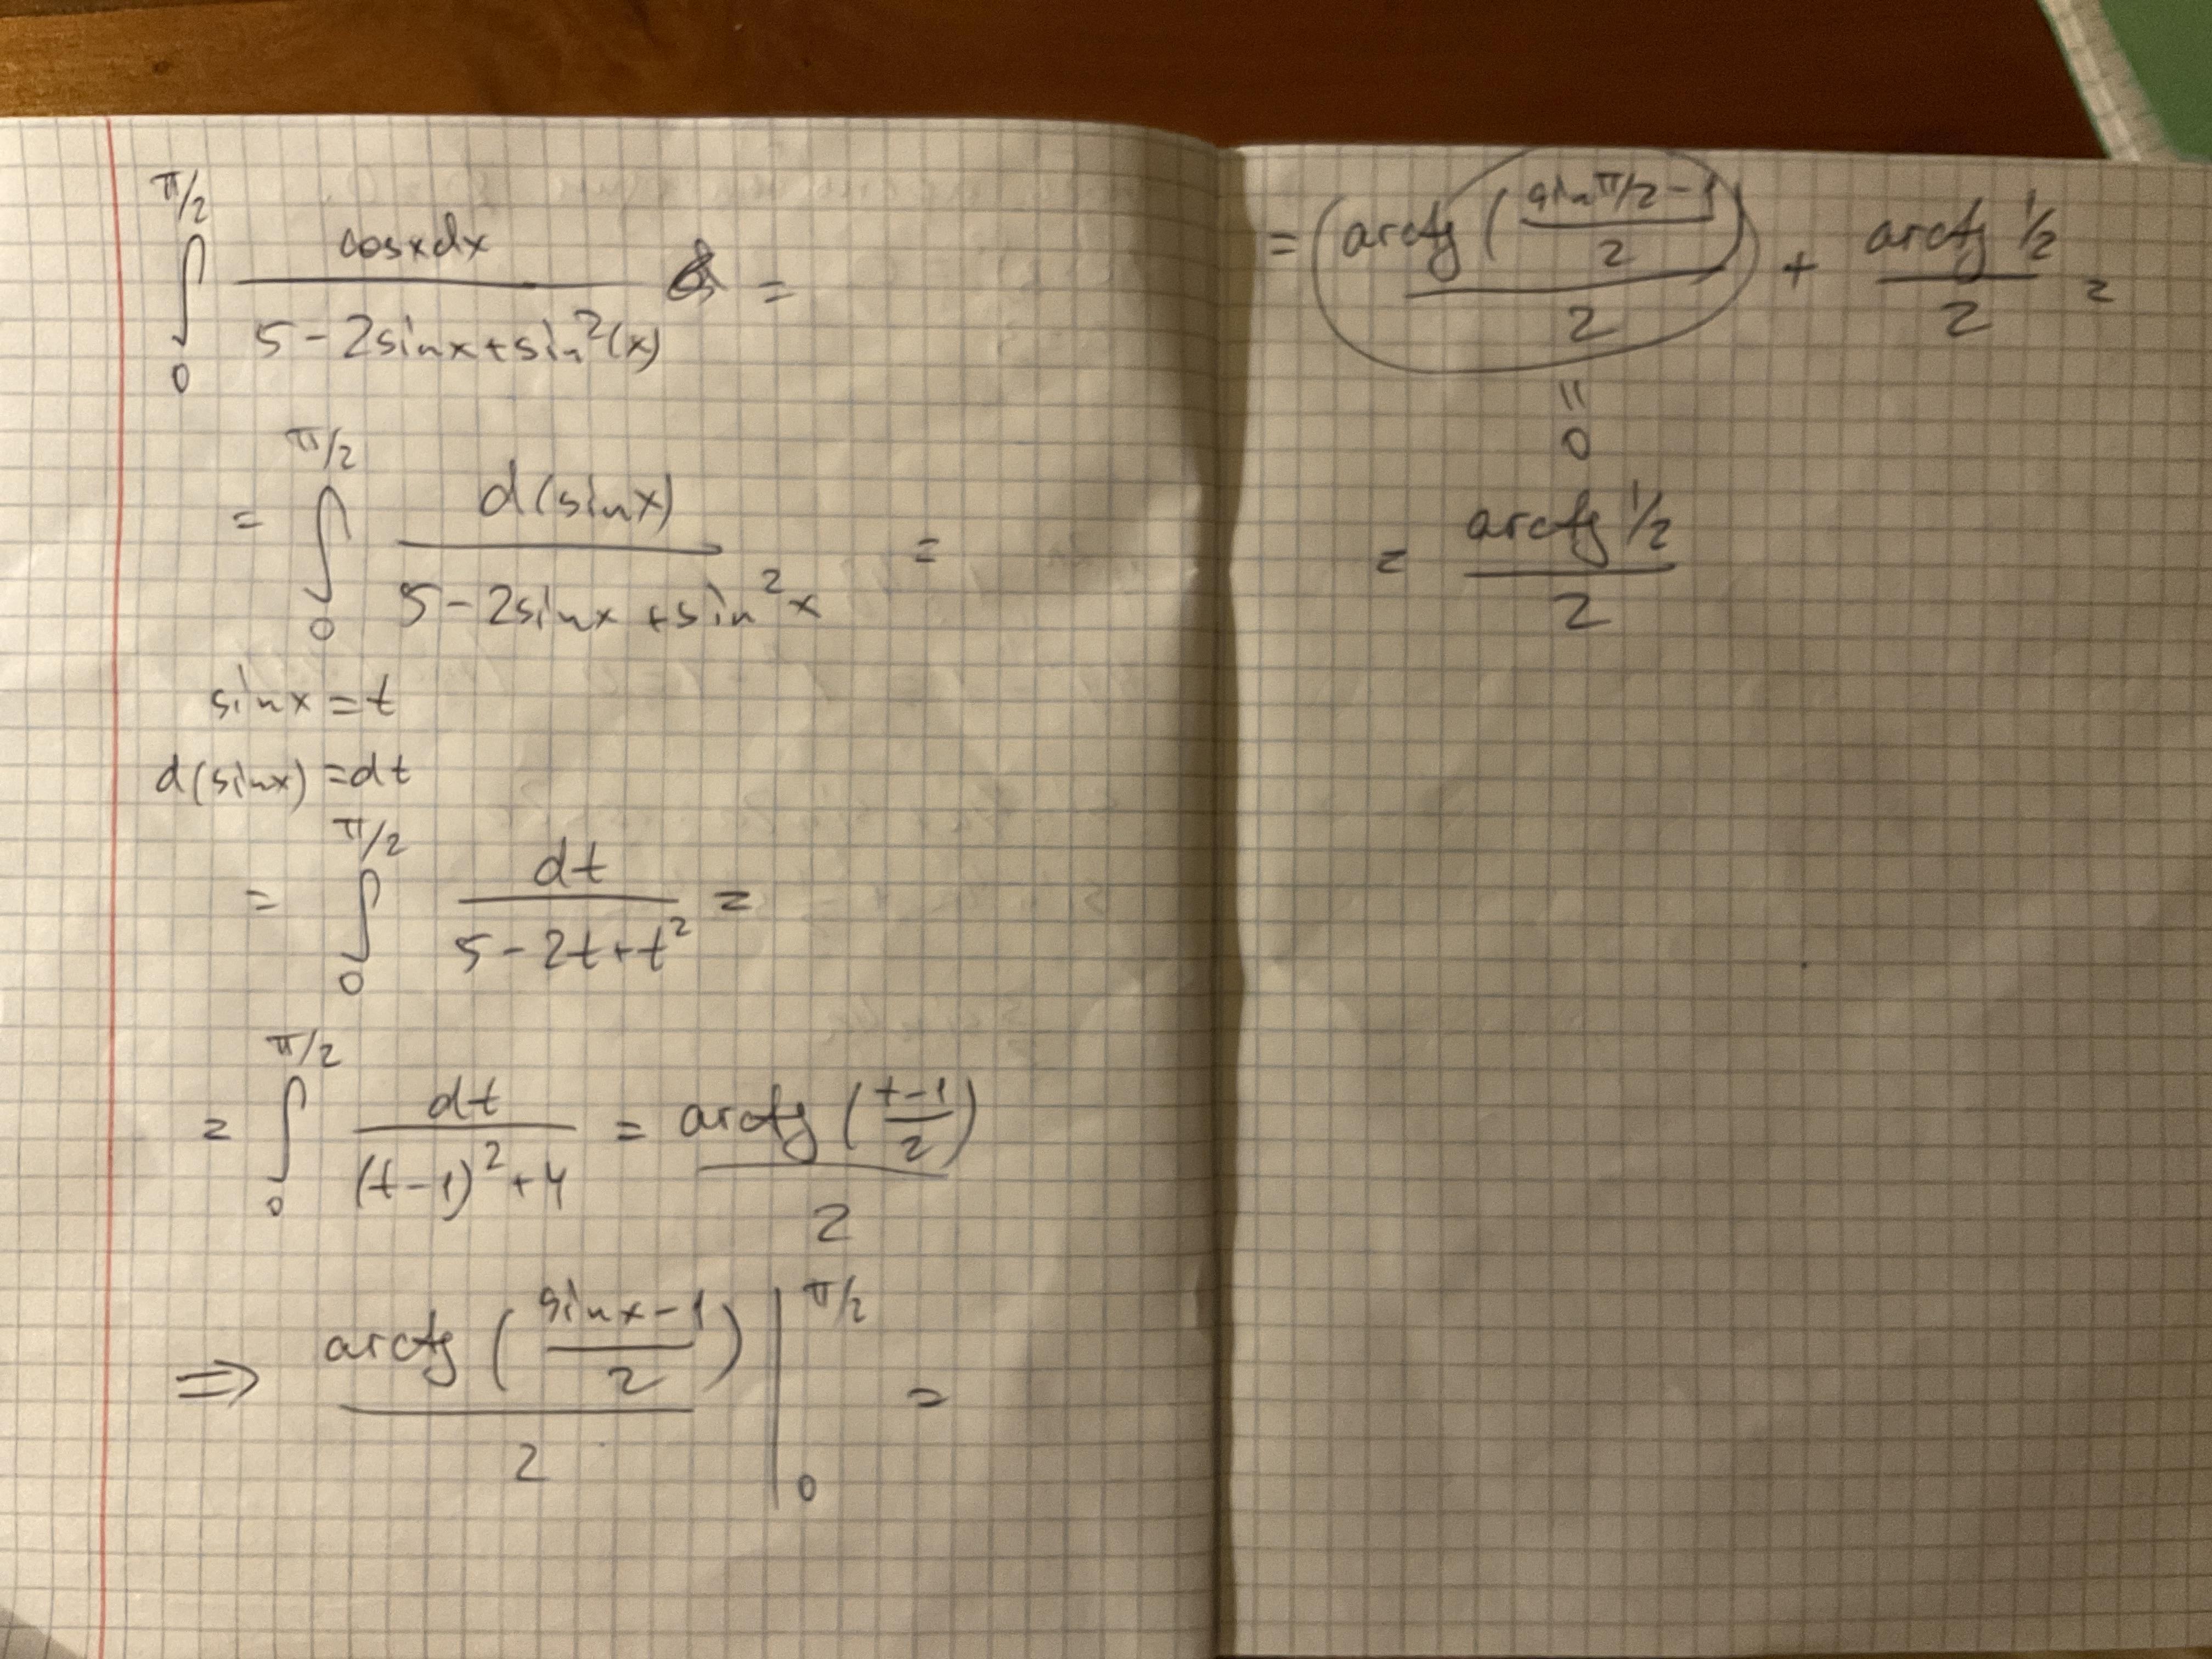 π/2 ∫ 0 cosxdx / 5-2sinx+sin²(x) =
= π/2 ∫ 0 d(sinx) / 5-2sinx+sin²x =
sinx=t
d(sinx)=dt
= π/2 ∫ 0 dt / 5-2t+t² =
= π/2 ∫ 0 dt / (t-1)²+4 = arctg (t-1 / 2) / 2
⇒ arctg (sinx-1 / 2) / 2 | π/2 0 =
= arctg (sin π/2-1 / 2) / 2 + arctg 1/2 / 2 =
=
0
= arctg 1/2 / 2